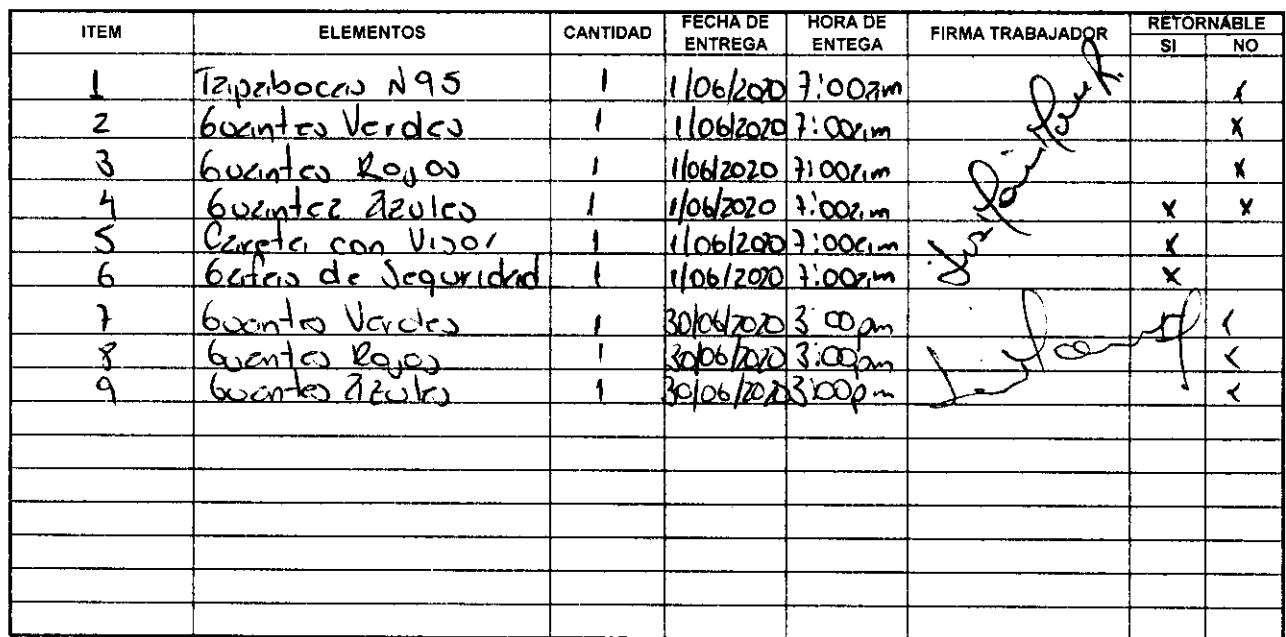 ITEM ELEMENTOS CANTIDAD FECHA DE ENTREGA HORA DE ENTEGA FIRMA TRABAJADOR RETORNABLE SI NO
1 Tapabocas N95 1 1/06/2020 7:00am x
2 Guantes Verdes 1 1/06/2020 7:00am x
3 Guantes Rojos 1 1/06/2020 7:00am x
4 Guantez Azules 1 1/06/2020 7:00am x x
5 Careta con Visor 1 1/06/2020 7:00am x
6 Gafas de Seguridad 1 1/06/2020 7:00am x
7 Guantes Verdes 1 30/06/2020 3:00pm x
8 Guantes Rojos 1 30/06/2020 3:00pm x
9 Guantes Azules 1 30/06/2020 3:00pm x